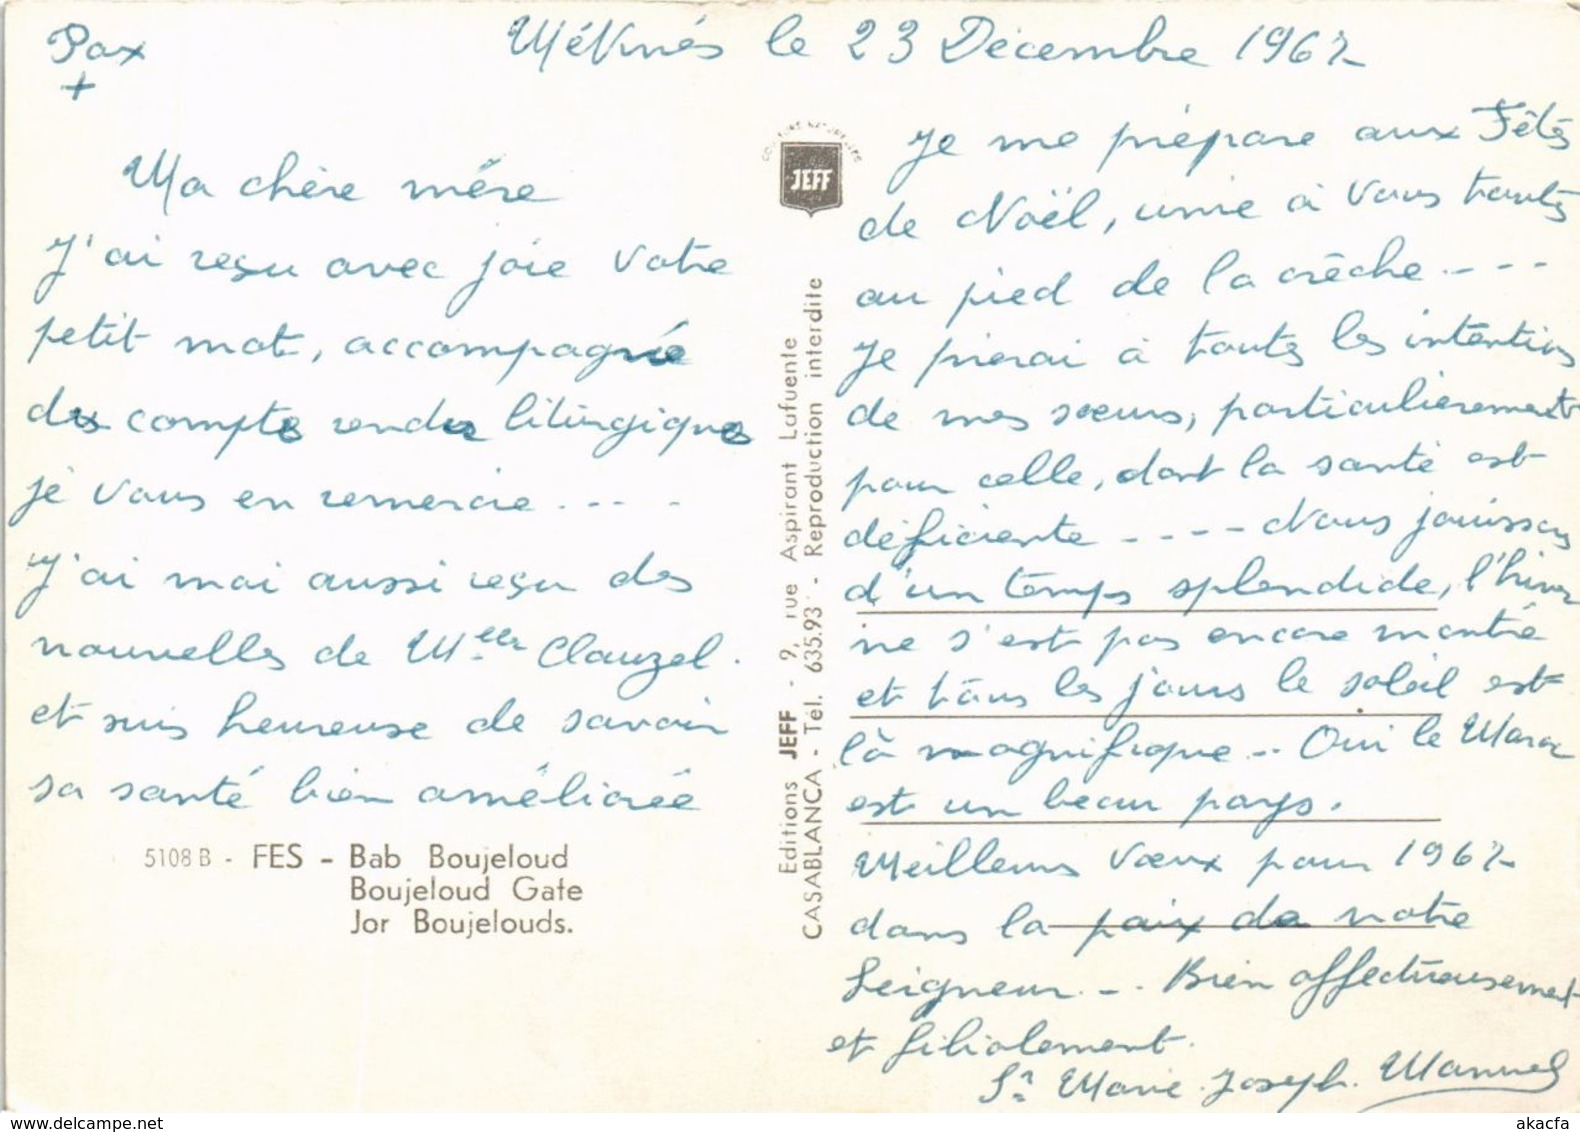 Pax
+
Méknés le 23 Décembre 1967
Ma chère mére
J'ai reçu avec joie votre
petit mot, accompagnée
des compts rendus liturgiques
je vous en remercie....
J'ai moi aussi reçu des
nouvelles de Melle Clauzel.
et suis heureuse de savoir
sa santé bien améliorée
5108 B - FES - Bab Boujeloud
Boujeloud Gate
Jor Boujelouds.
COULEURS NATURELLES
JEFF
Editions JEFF - 9, rue Aspirant Lafuente
CASABLANCA - Tél. 635.93 - Reproduction interdite
Je me prépare aux Fêtes
de Noël, unie à vous toutes
au pied de la crèche....
Je prierai à toutes les intentions
de mes sœurs, particulièrement
pour celle, dont la santé est
déficiente .... Nous jouissons
d'un temps splendide, l'hiver
ne s'est pas encore montré
et tous les jours le soleil est
là magnifique... Oui le Maroc
est un beau pays.
Meilleurs vœux pour 1967
dans la paix de notre
Seigneur... Bien affectueusement
et filialement.
Sr Marie Joseph Manuel
akpool.co.uk
akacfa